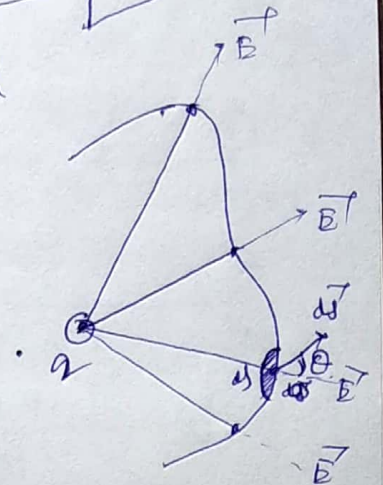 E⃗
E⃗
ds⃗
q
ds
θ
E⃗
E⃗